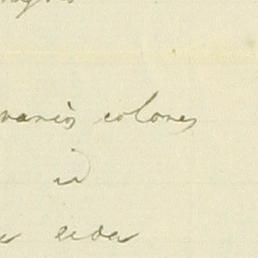 varios colores
id
seda